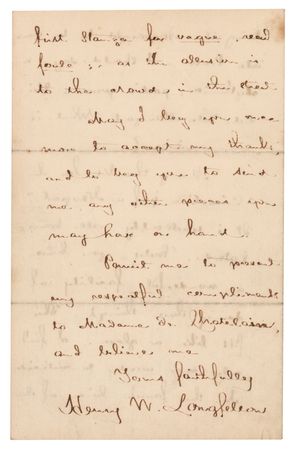 first Stanza for vague, read
foule; as the allusion is
to the crowds in the street.
May I beg you once
more to accept my thanks,
and to beg you to send
me any other pieces you
may have on hand.
Permit me to present
my respectful compliments
to Madame de Chatelain,
and believe me
Yours faithfully
Henry W. Longfellow